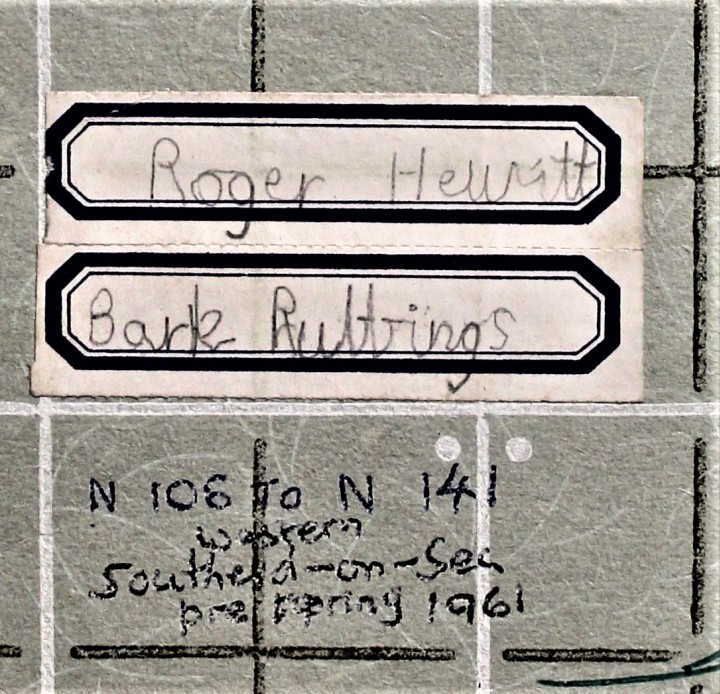 Roger Hewitt
Bark Ruttings
N 106 To N 141
western
Southend-on-Sea
pre spring 1961